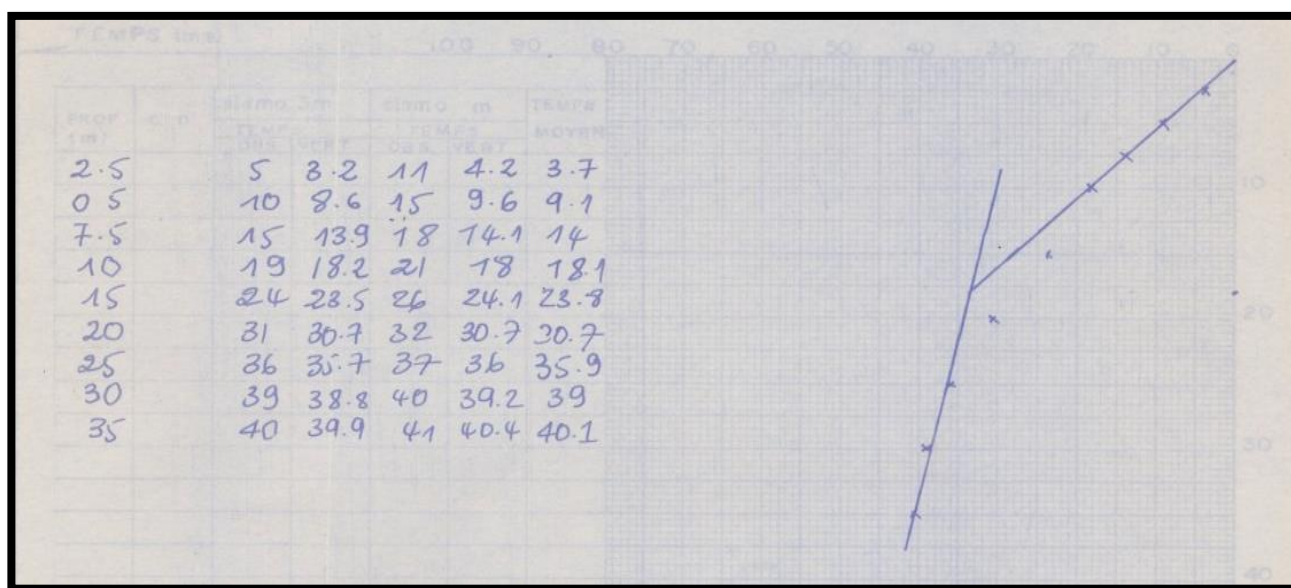 TEMPS (ms) 100 90 80 70 60 50 40 30 20 10 0
sismo 3m sismo m TEMPS
PROF MOYEN
(m) TEMPS TEMPS
OBS. VERT OBS. VERT
2.5 5 3.2 11 4.2 3.7
0 5 10 8.6 15 9.6 9.1
7.5 15 13.9 18 14.1 14
10 19 18.2 21 18 18.1
15 24 23.5 26 24.1 23.8
20 31 30.7 32 30.7 30.7
25 36 35.7 37 36 35.9
30 39 38.8 40 39.2 39
35 40 39.9 41 40.4 40.1
10
20
30
40